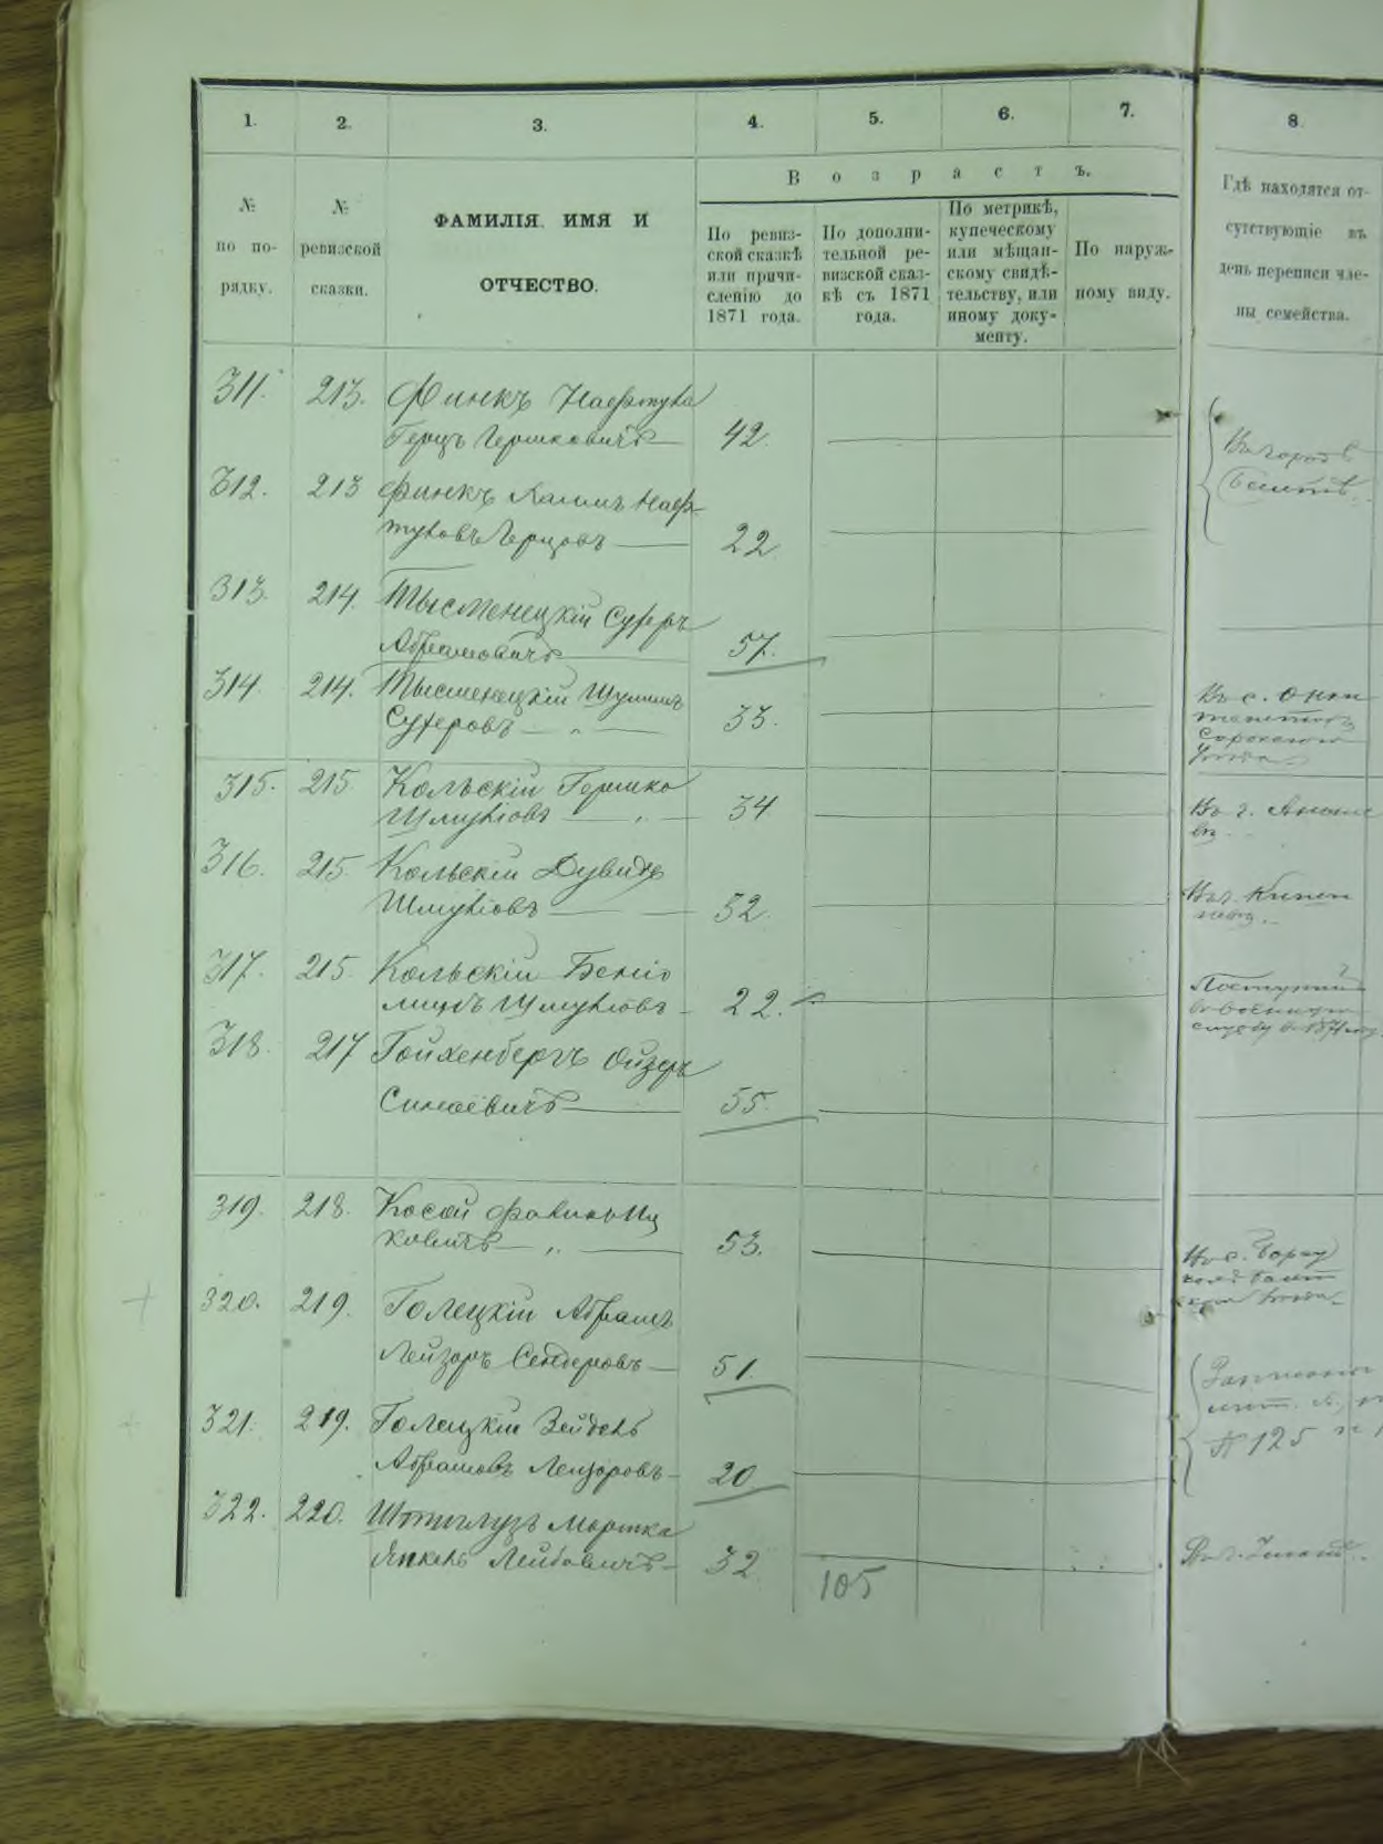 1. 2. 3. 4. 5. 6. 7. 8.
№ по по-рядку.
№ ревизской сказки.
ФАМИЛІЯ, ИМЯ И
ОТЧЕСТВО.
Возрастъ.
По ревиз-
ской сказкѣ
или причи-
сленію до
1871 года.
По дополни-
тельной ре-
визской сказ-
кѣ съ 1871
года.
По метрикѣ,
купеческому
или мѣщан-
скому свидѣ-
тельству, или
иному доку-
менту.
По наруж-
ному виду.
Гдѣ находятся от-
сутствующіе въ
день переписи чле-
ны семейства.
311. 213. Финкъ Нафтула
Герцъ Гершковичъ 42.
Въ городѣ
Балтѣ.
312. 213 Финкъ Хаимъ Наф-
туловъ Герцовъ 22
313. 214. Тысменецкій Суферъ
Абрамовичъ 57.
314. 214. Тысменецкій Шулимъ
Суферовъ 33.
Въ с.
315. 215. Кольскій Гершко
Шмуліовъ 34
Въ г. Ананье
въ.
316. 215. Кольскій Дувидъ
Шмуліовъ 32.
Въ г. Кишен
невѣ.
317. 215. Кольскій Беніо
минъ Шмуліовъ 22.
Поступилъ
въ военную
службу
318. 217 Гойхенбергъ Ойзеръ
Синаевичъ 55.
319. 218. Косой
ковичъ 53.
Въ с.
320. 219. Голецкій Абрамъ
Лейзоръ Сендеровъ 51.
321. 219. Голецкій Зейдель
Абрамовъ Лейзоровъ 20
№ 125
322. 220. Мортка
Янкель Лейбовичъ 32
105